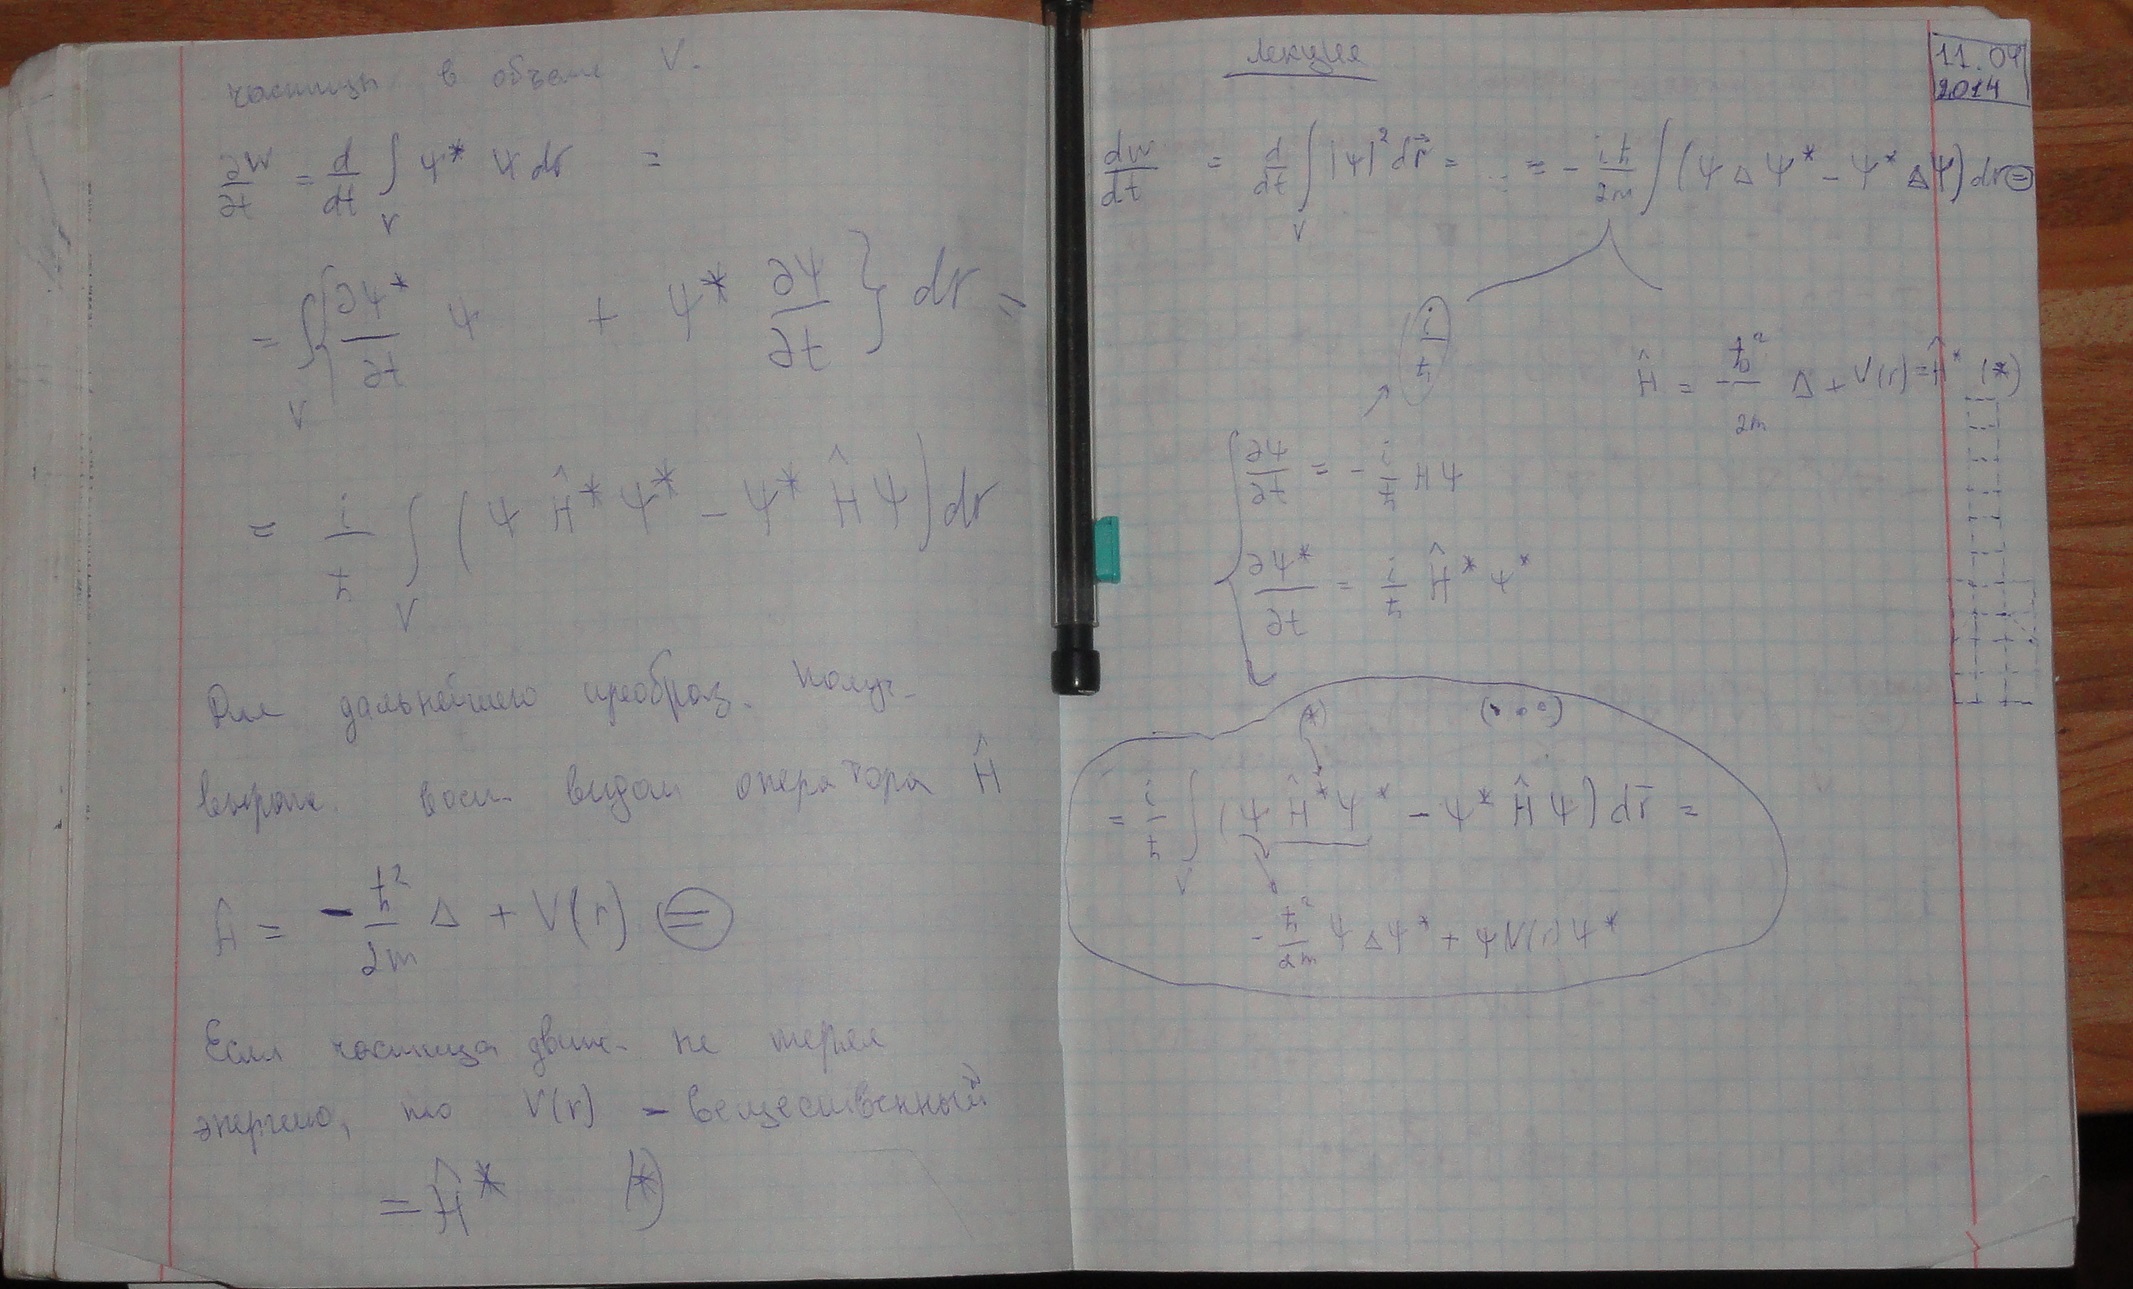 частицы в объеме V.
∂W/∂t = d/dt ∫_V Ψ* Ψ dr =
= ∫_V { ∂Ψ*/∂t Ψ + Ψ* ∂Ψ/∂t } dr =
= i/ħ ∫_V (Ψ Ĥ* Ψ* - Ψ* Ĥ Ψ) dr
Для дальнейшего преобраз. получ.
выраж. восп. видом оператора Ĥ
Ĥ = - ħ²/2m Δ + V(r) ⊜
Если частица движ. не теряя
энергию, то V(r) - вещественный
= Ĥ* (*)
Лекция
11.04
2014
dW/dt = d/dt ∫_V |Ψ|² dr⃗ = ... = - iħ/2m ∫ (Ψ Δ Ψ* - Ψ* Δ Ψ) dr ⊜
i/ħ
Ĥ = - ħ²/2m Δ + V(r) = Ĥ* (*)
∂Ψ/∂t = - i/ħ HΨ
∂Ψ*/∂t = i/ħ Ĥ* Ψ*
(*) (∘∘∘)
= i/ħ ∫_V (Ψ Ĥ* Ψ* - Ψ* Ĥ Ψ) dr⃗ =
- ħ²/2m Ψ Δ Ψ* + Ψ V(r) Ψ*